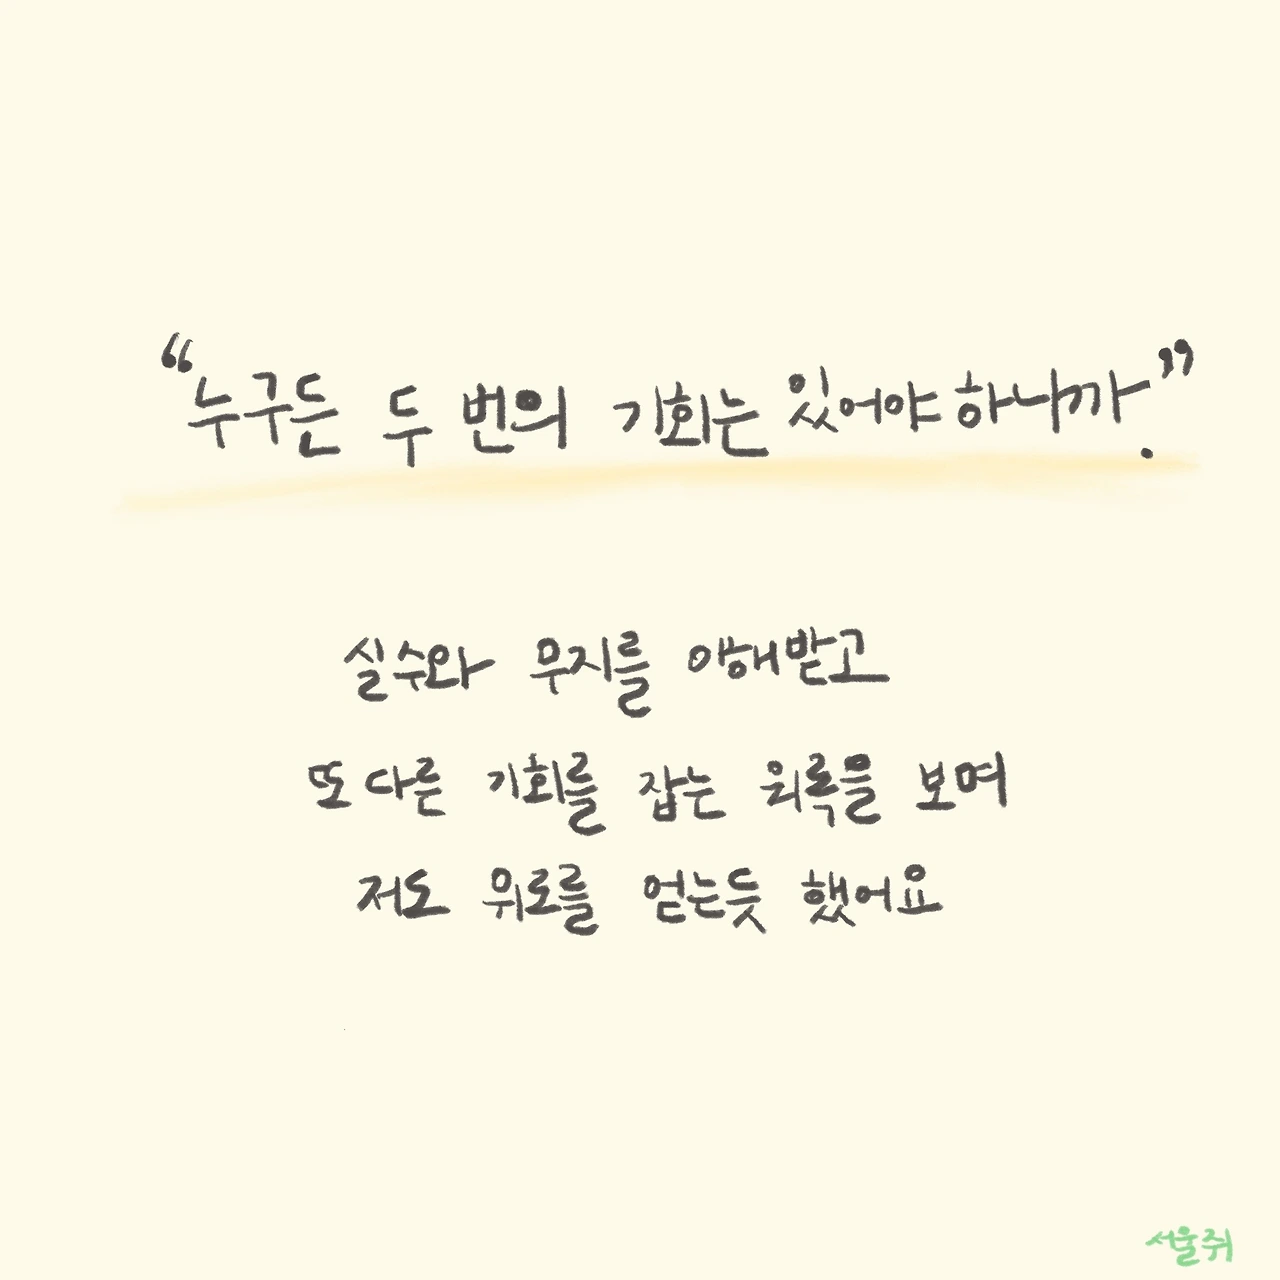 “누구든 두 번의 기회는 있어야 하니까.”
실수와 무지를 이해받고
또 다른 기회를 잡는 외록을 보며
저도 위로를 얻는듯 했어요
서울쥐